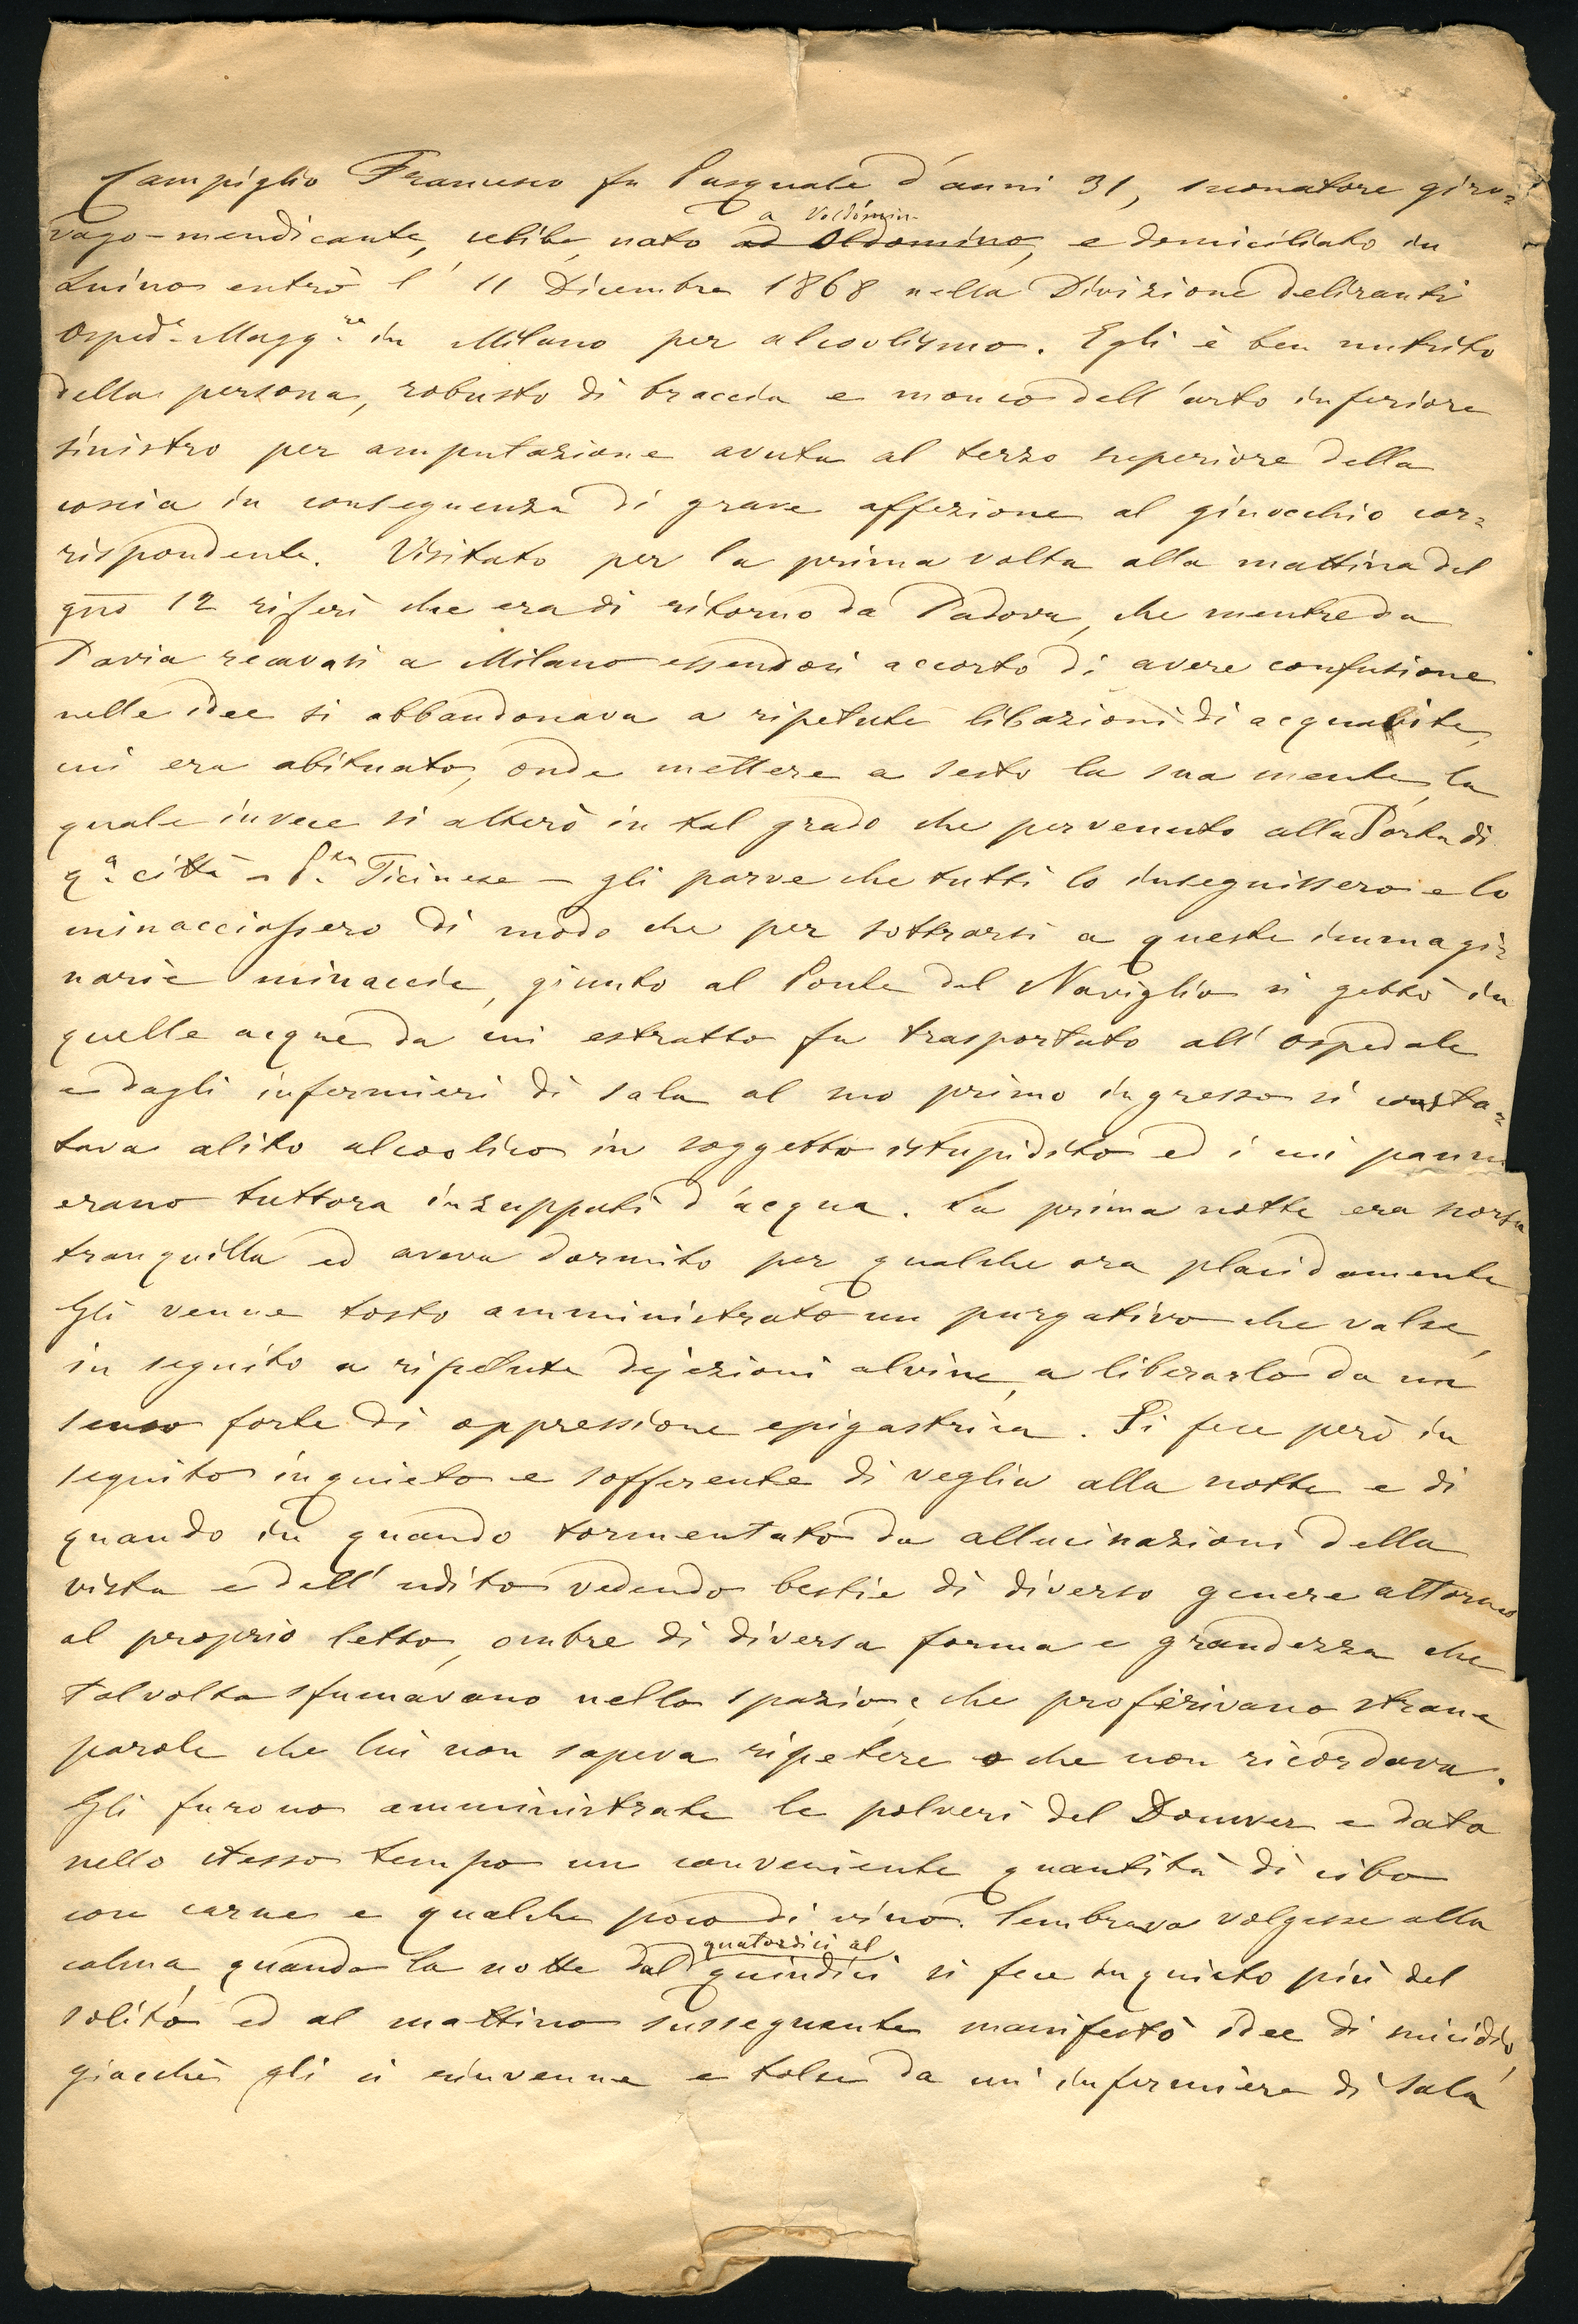 Campiglio Francesco fu Pasquale d'anni 31, suonatore giro=
vago-mendicante, celibe, nato ad Oldomino, e domiciliato in
a Voldomin.
Luino entrò l' 11 Dicembre 1868 nella Divisione deliranti
Osped.e Magg.re in Milano per alcoolismo. Egli è ben nutrito
della persona, robusto di braccia e monco dell'arto inferiore
sinistro per amputazione avuta al terzo superiore della
coscia in conseguenza di grave affezione al ginocchio cor=
rispondente. Visitato per la prima volta alla mattina del
gno 12 riferì che era di ritorno da Padova, che mentre da
Pavia recavasi a Milano essendosi accorto di avere confusione
nelle idee si abbandonava a ripetute libazioni di acquavite,
cui era abituato, onde mettere a sesto la sua mente, la
quale invece si alterò in tal grado che pervenuto alla Porta di
q.a città - P.ta Ticinese - gli parve che tutti lo inseguissero e lo
minacciassero di modo che per sottrarsi a queste immagi=
narie minaccie, giunto al Ponte del Naviglio si gettò in
quelle acque da cui estratto fu trasportato all'ospedale
e dagli infermieri di sala al suo primo ingresso si consta=
tava alito alcoolico in soggetto istupidito ed i cui panni
erano tuttora inzuppati d'acqua. La prima notte era scorsa
tranquilla ed aveva dormito per qualche ora placidamente
Gli venne tosto amministrato un purgativo che valse,
in seguito a ripetute dejezioni alvine, a liberarlo da un
senso forte di oppressione epigastrica. Si fece però in
seguito inquieto e sofferente di veglia alla notte e di
quando in quando tormentato da allucinazioni della
vista e dell'udito vedendo bestie di diverso genere attorno
al proprio letto, ombre di diversa forma e grandezza che
talvolta sfumavano nello spazio, e che proferivano strane
parole che lui non sapeva ripetere o che non ricordava.
Gli furono amministrate le polveri del Douwer e data
nello stesso tempo un conveniente quantità di cibo
con carne e qualche poco di vino. Sembrava volgesse alla
calma, quando la notte dal quattordici al quindici si fece inquieto più del
solito ed al mattino susseguente manifestò idee di suicidio,
giacchè gli si rinvenne e tolse da un infermiere di sala